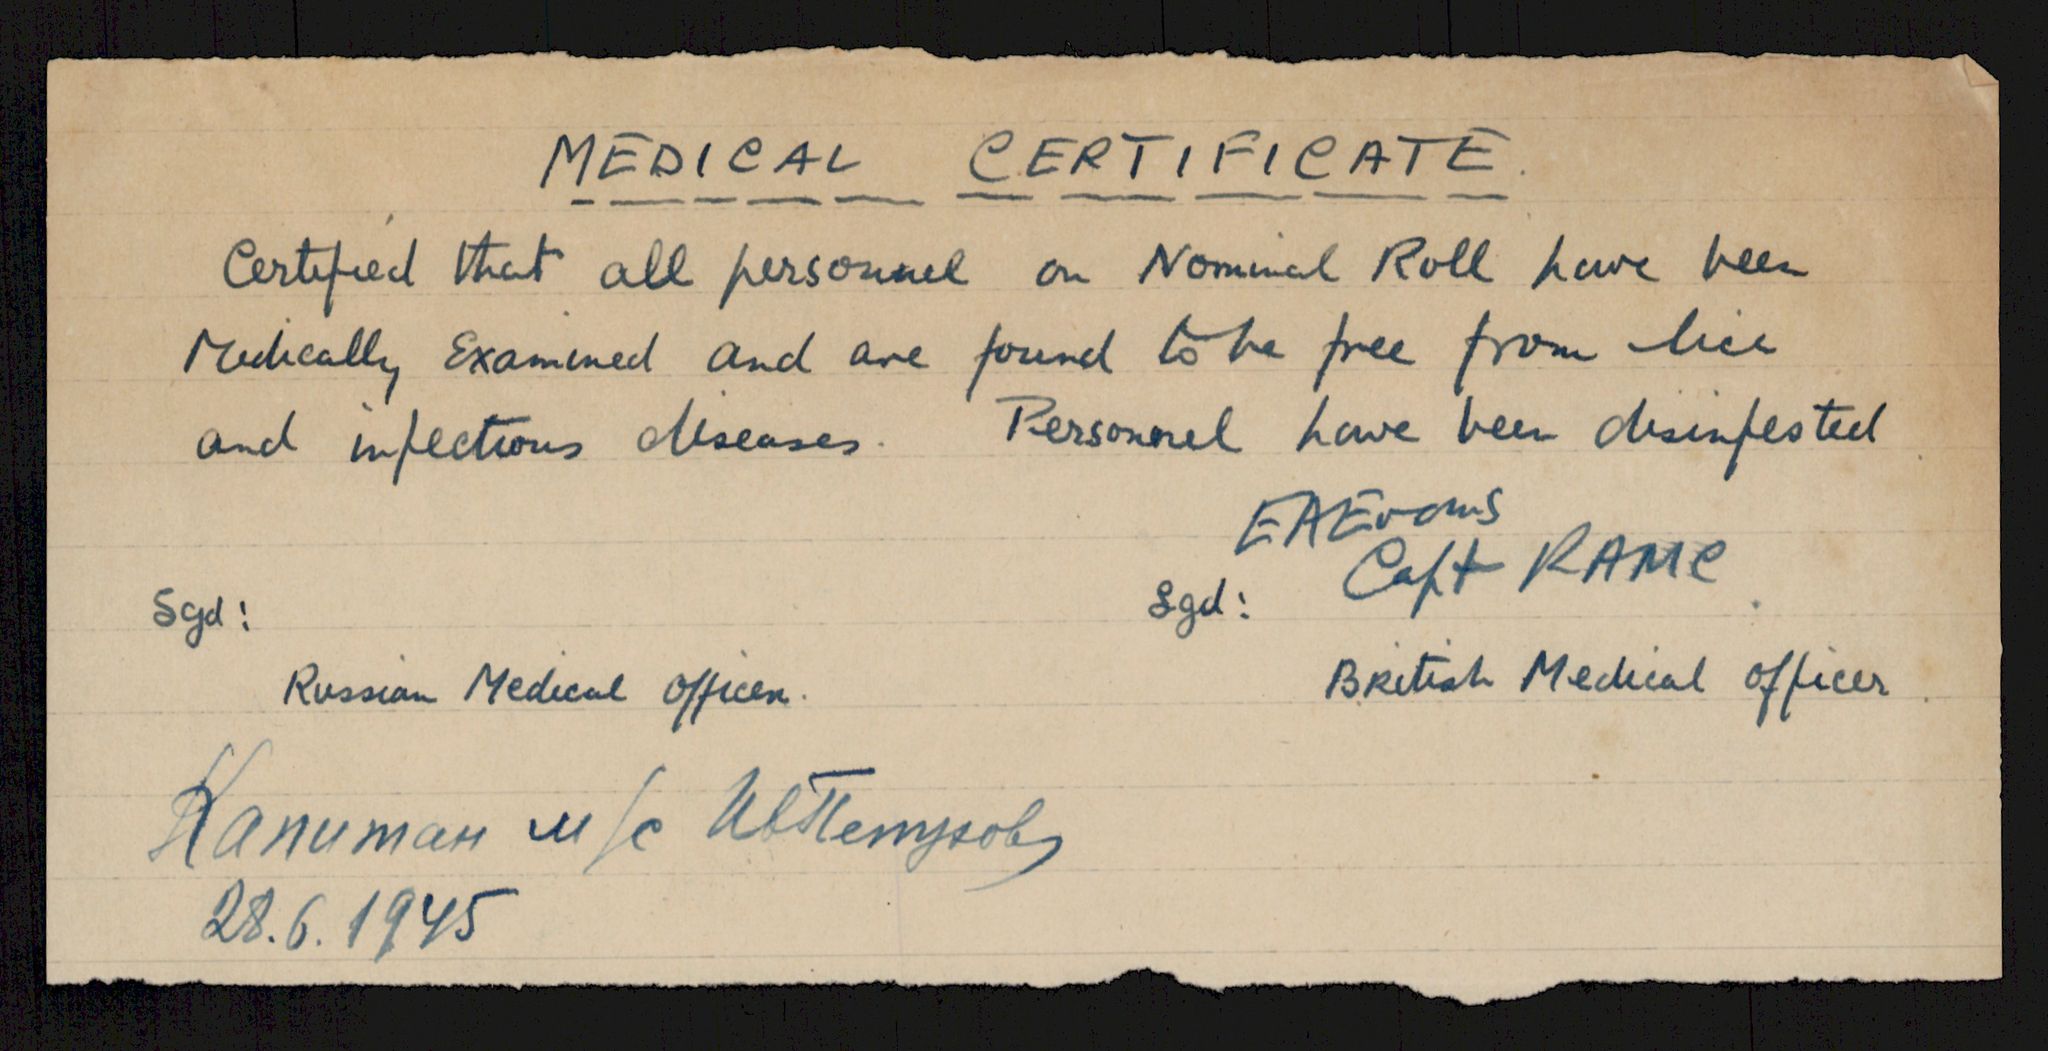 MEDICAL CERTIFICATE.
Certified that all personnel on Nominal Roll have been
Medically Examined and are found to be free from lice
and infectious diseases. Personnel have been disinfested
EAEvans
Capt RAMC
Sgd:
Sgd:
Russian Medical Officer.
British Medical Officer.
Капитан м/с
28.6.1945